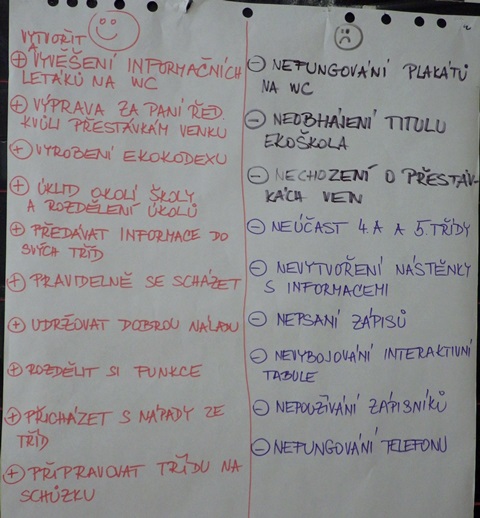 VYTVOŘIT
A
⊕ VYVĚŠENÍ INFORMAČNÍCH
LETÁKŮ NA WC
⊕ VÝPRAVA ZA PANÍ ŘED.
KVŮLI PŘESTÁVKÁM VENKU
⊕ VYROBENÍ EKOKODEXU
⊕ ÚKLID OKOLÍ ŠKOLY
A ROZDĚLENÍ ÚKOLŮ
⊕ PŘEDÁVAT INFORMACE DO
SVÝCH TŘÍD
⊕ PRAVIDELNĚ SE SCHÁZET
⊕ UDRŽOVAT DOBROU NÁLADU
⊕ ROZDĚLIT SI FUNKCE
⊕ PŘICHÁZET S NÁPADY ZE
TŘÍD
⊕ PŘIPRAVOVAT TŘÍDU NA
SCHŮZKU
⊖ NEFUNGOVÁNÍ PLAKÁTŮ
NA WC
⊖ NEOBHÁJENÍ TITULU
EKOŠKOLA
⊖ NECHOZENÍ O PŘESTÁV-
KÁCH VEN
⊖ NEÚČAST 4.A A 5.TŘÍDY
⊖ NEVYTVOŘENÍ NÁSTĚNKY
S INFORMACEMI
⊖ NEPSANÍ ZÁPISŮ
⊖ NEVYBOJOVÁNÍ INTERAKTIVNÍ
TABULE
⊖ NEPOUŽÍVÁNÍ ZÁPISNÍKŮ
⊖ NEFUNGOVÁNÍ TELEFONU